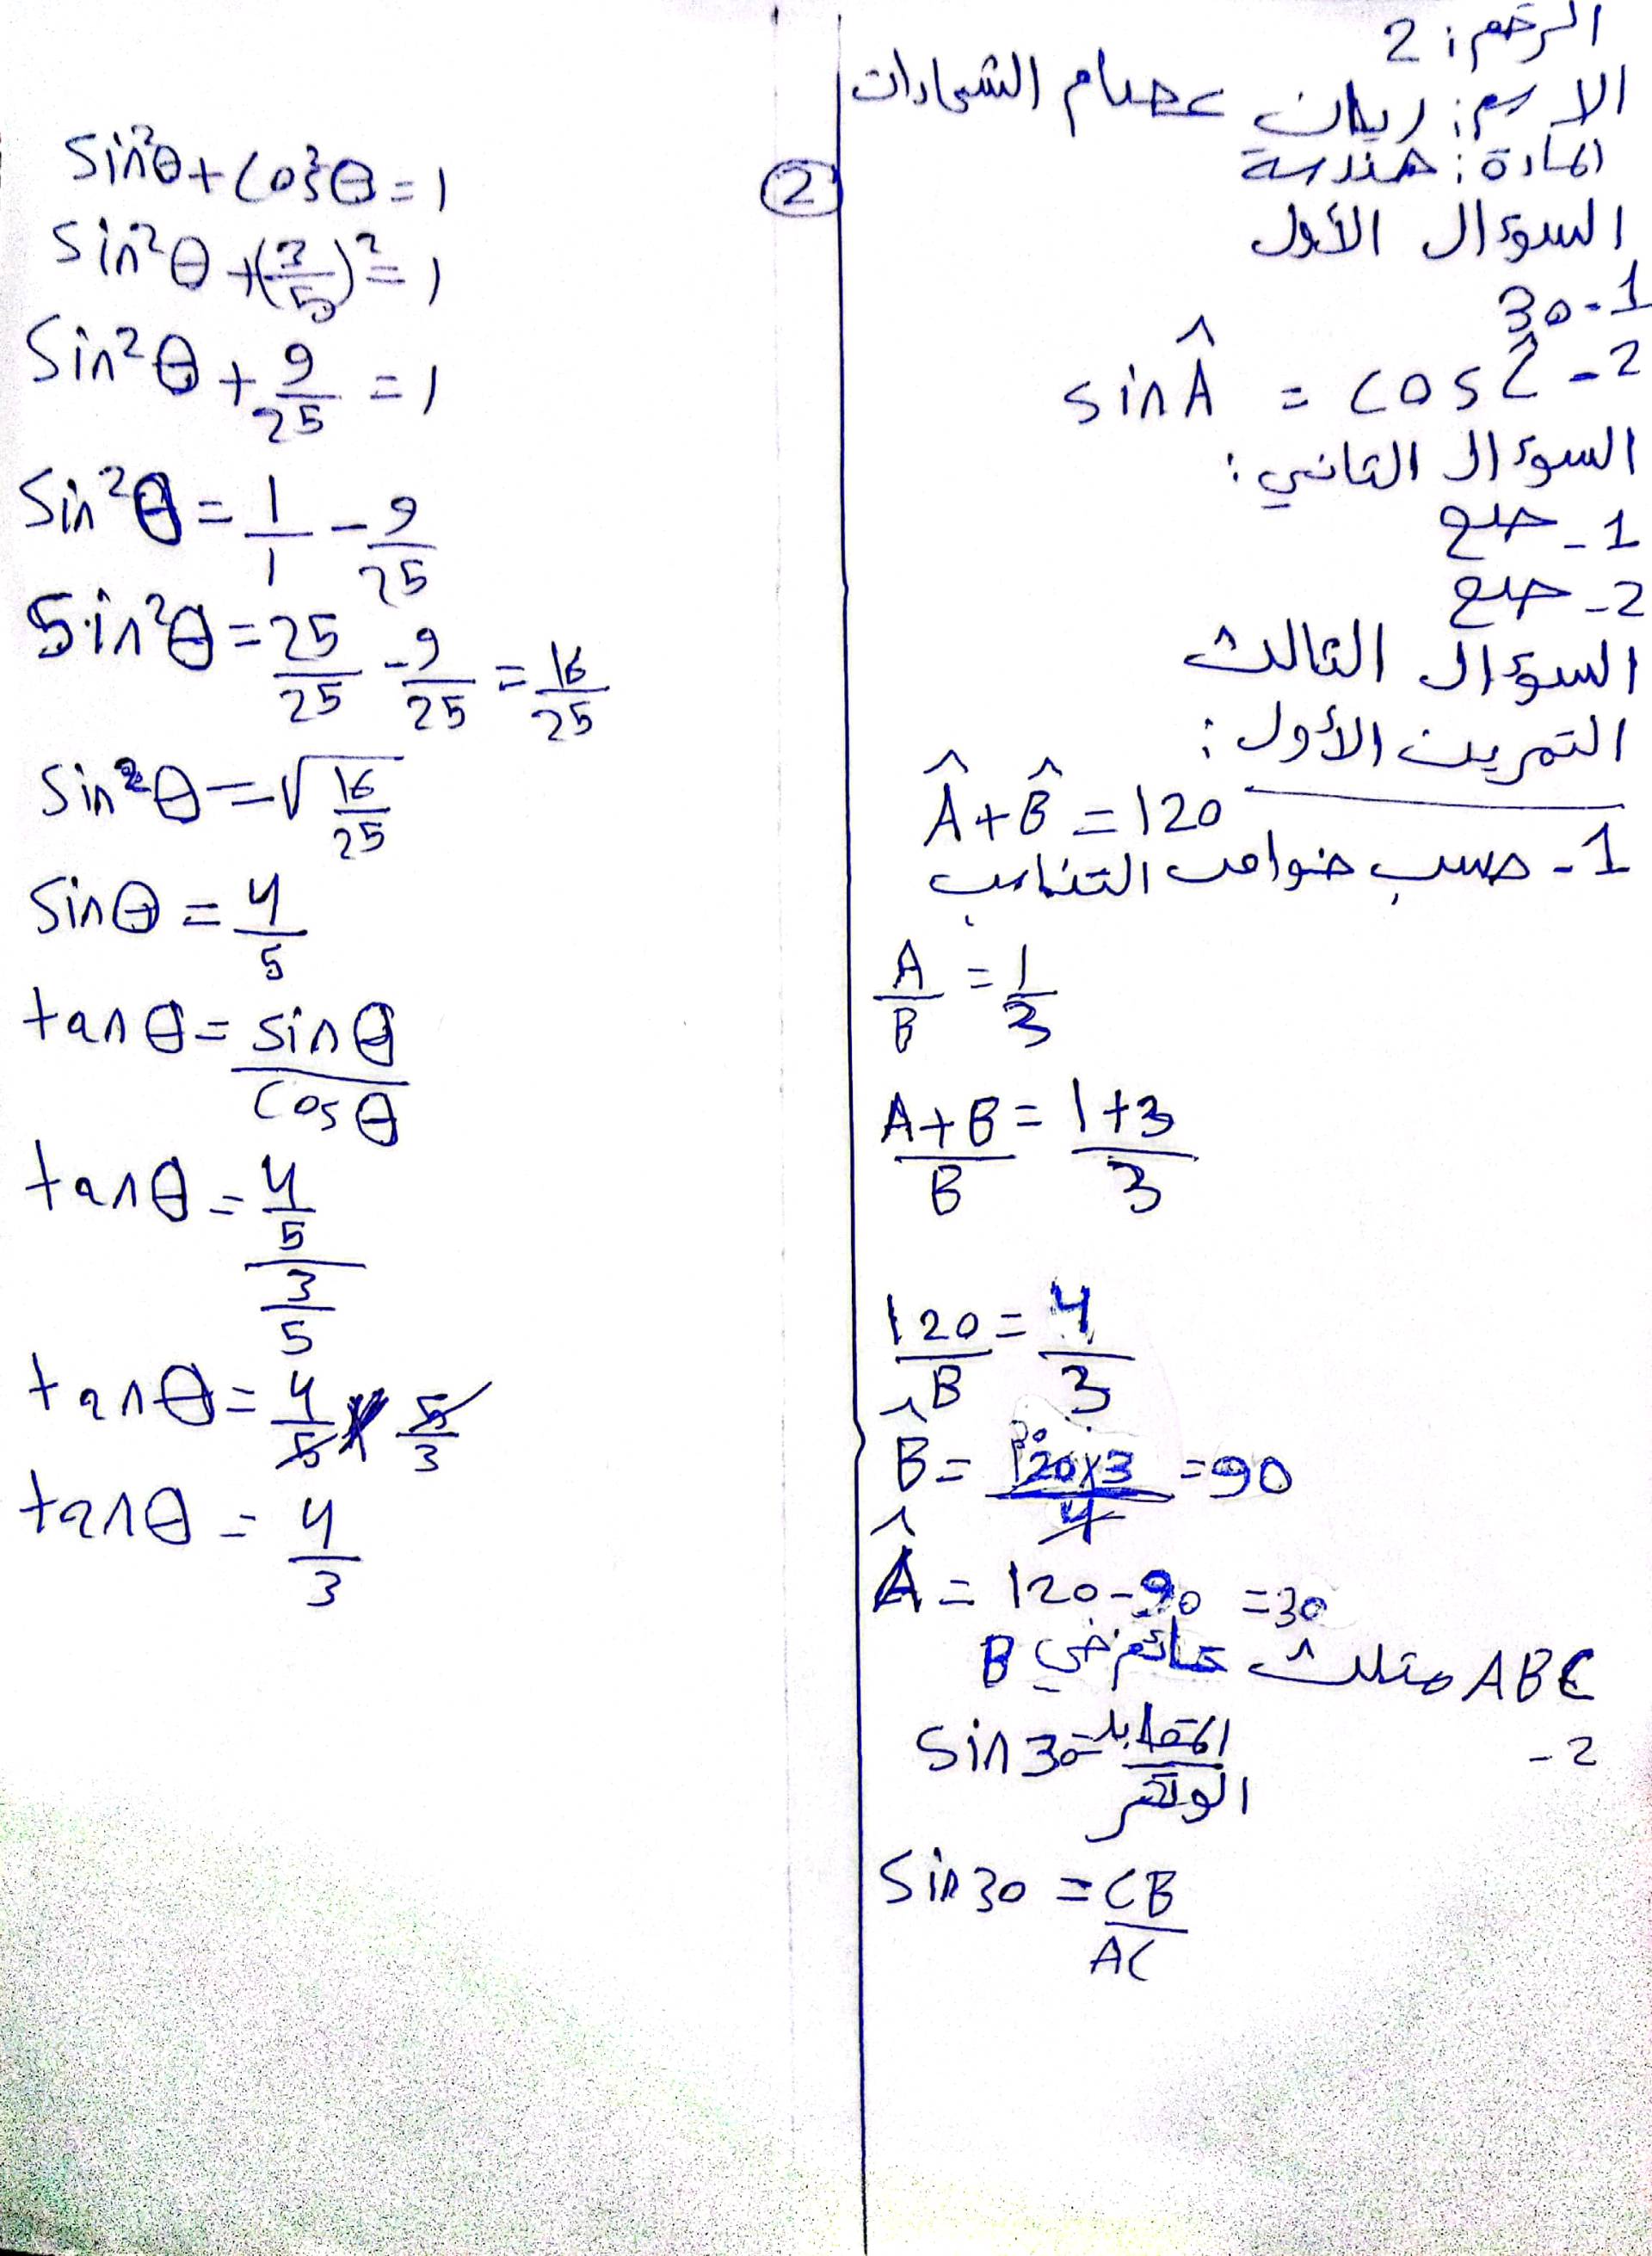 الرقم: 2
الاسم: ريان عصام الشحادات
المادة: هندسة
السوءال الأول
1- 30
2- sin Â = cos Ĉ
السوءال الثاني:
1- صح
2- صح
السوءال الثالث
التمرين الأول:
Â + B̂ = 120
1- حسب خواص التناسب
A/B = 1/3
A+B/B = 1+3/3
120/B = 4/3
B̂ = 120×3/4 = 90
Â = 120-90 = 30
ABC مثلث قائم في B
2-
sin 30 = المقابل/الوتر
sin 30 = CB/AC
②
sin²θ + cos²θ = 1
sin²θ + (3/5)² = 1
sin²θ + 9/25 = 1
sin²θ = 1/1 - 9/25
sin²θ = 25/25 - 9/25 = 16/25
sin²θ = √16/25
sinθ = 4/5
tanθ = sinθ/cosθ
tanθ = 4/5 / 3/5
tanθ = 4/5 × 5/3
tanθ = 4/3